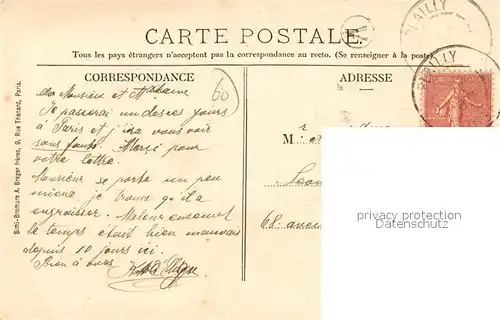 CARTE POSTALE
Tous les pays étrangers n'acceptent pas la correspondance au recto. (Se renseigner à la poste)
CORRESPONDANCE
ADRESSE
60
Monsieur et Madame
Je passerai un de ces jours
à Paris et j'irai vous voir
sans faute. Merci pour
votre lettre.
Monsieur se porte un peu
mieux je trouve qu'il a
engraisser.
le temps était bien mauvais
depuis 10 jours ici.
Bien à vous
M
68
Simi-Bromure A. Breger frères, 9, Rue Thénard, Paris.
PLAILLY
PLAILLY
property protection
Datenschutz